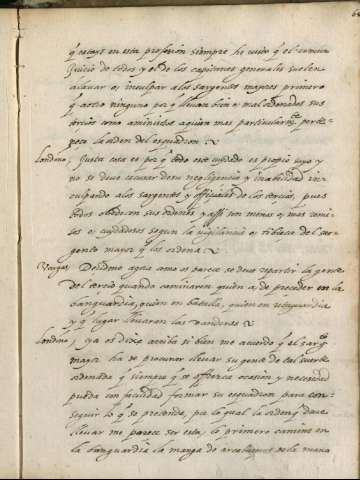 q̃ estays en esta profesion siempre he visto q̃ el comun
Juicio de todos y el de los capitanes generales suelen
alauar o, inculpar a los sargentos mayores primero
q̃ a otro ninguno por q̃ lleuen bien o, mal ordenados sus
tercios como a ministros a quien mas particularm.te perte
nece la orden del esquadron
Londoño, Justa cosa es por q̃ todo este cuydado es propio suyo y
no se deue escusar de su negligencia y inabilidad in
culpando a los sargentos y officiales de los tercios, pues
todos obedecen sus ordenes y assi son menos o, mas
sos o, cuydadosos segun la vigilancia o, tibieza del sar
gento mayor q̃ los ordena
Vargas, Dezidme agora como os parece se deue repartir la gente
del tercio quando caminaren quien a de preceder en la
banguardia, quien en batalla, quien en retaguardia
y q̃ lugar lleuaran las vanderas
Londoño, ya os dixe arriba si bien me acuerdo q̃ el sarg.to
mayor ha de procurar lleuar su gente de tal suerte
ordenada q̃ siempre q̃ se offrezca ocasion y necesidad
pueda con facilidad formar su esquadron para con
seguir lo q̃ se pretende por lo qual la orden q̃ deue
lleuar me parece ser esta, lo primero camine en
la banguardia la manga de arcabuzeros de la mano